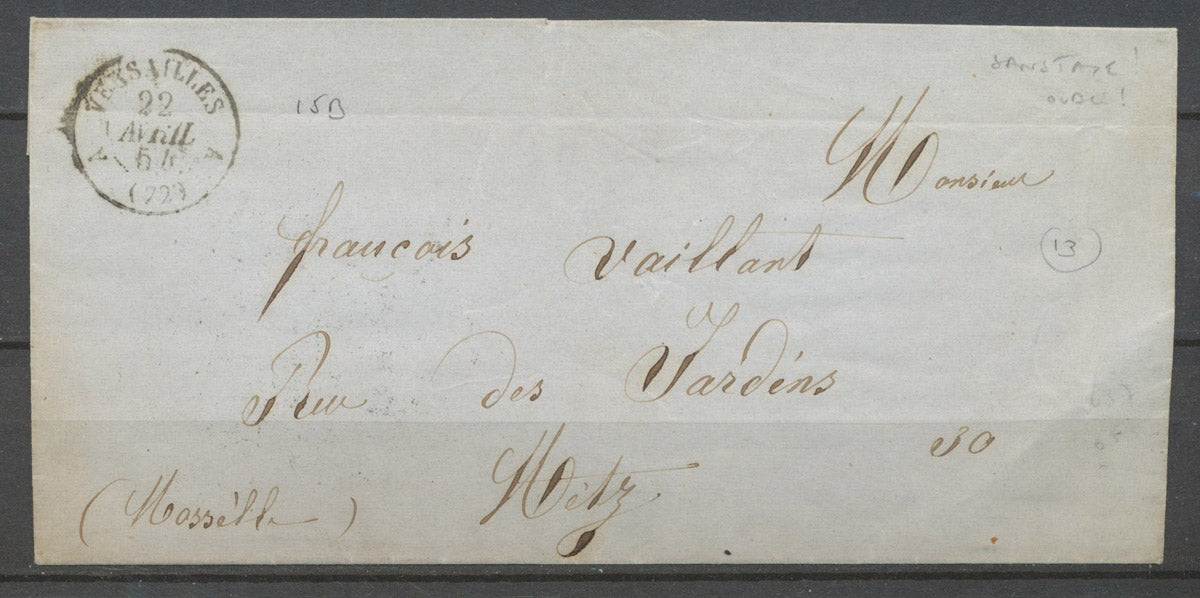 VERSAILLES
22
AVRIL
54
(72)
15B
SANS TAXE!
OUBLI!
Monsieur
francois Vaillant
13
Rue des Jardins
30
Metz
(Mosséll